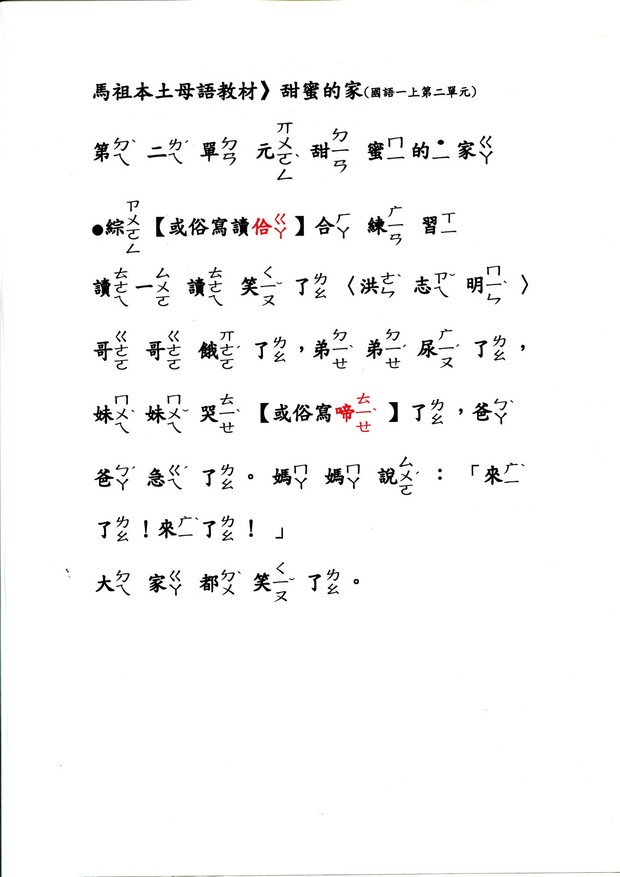 馬祖本土母語教材》甜蜜的家(國語一上第二單元)
第ㄉㄟˋ 二ㄌㄟˊ 單ㄉㄢ 元ㄫㄨㄛㄥ 甜ㄉㄧㄢ 蜜ㄇㄧ 的˙ㄧ 家ㄍㄚ
●綜ㄗㄨㄛㄥ【或俗寫讀佮ㄍㄚ】合ㄏㄚ 練ㄏㄧㄢ 習ㄒㄧ
讀ㄊㄜㄟ 一ㄙㄨㄛ 讀ㄊㄜㄟ 笑ㄑㄧㄡˇ 了ㄌㄠ〈洪ㄜㄣˋ 志ㄗㄟˇ 明ㄇㄧㄣˋ〉
哥ㄍㄜㄛ 哥ㄍㄜㄛ 餓ㄫㄜㄛˊ 了ㄌㄠ,弟ㄉㄧㄝˊ 弟ㄉㄧㄝˊ 尿ㄏㄧㄡˊ 了ㄌㄠ,
妹ㄇㄨㄟˋ 妹ㄇㄨㄟˇ 哭ㄊㄧㄝˋ【或俗寫啼ㄊㄧㄝˋ】了ㄌㄠ,爸ㄅㄚˋ
爸ㄅㄚˊ 急ㄍㄟˊ 了ㄌㄠ。 媽ㄇㄚ 媽ㄇㄚ 說ㄙㄨㄛˊ :「來
了ㄌㄠ!來 了ㄌㄠ! 」
大ㄉㄟ 家ㄍㄚ 都ㄉㄨˋ 笑ㄑㄧㄡˇ 了ㄌㄠ。